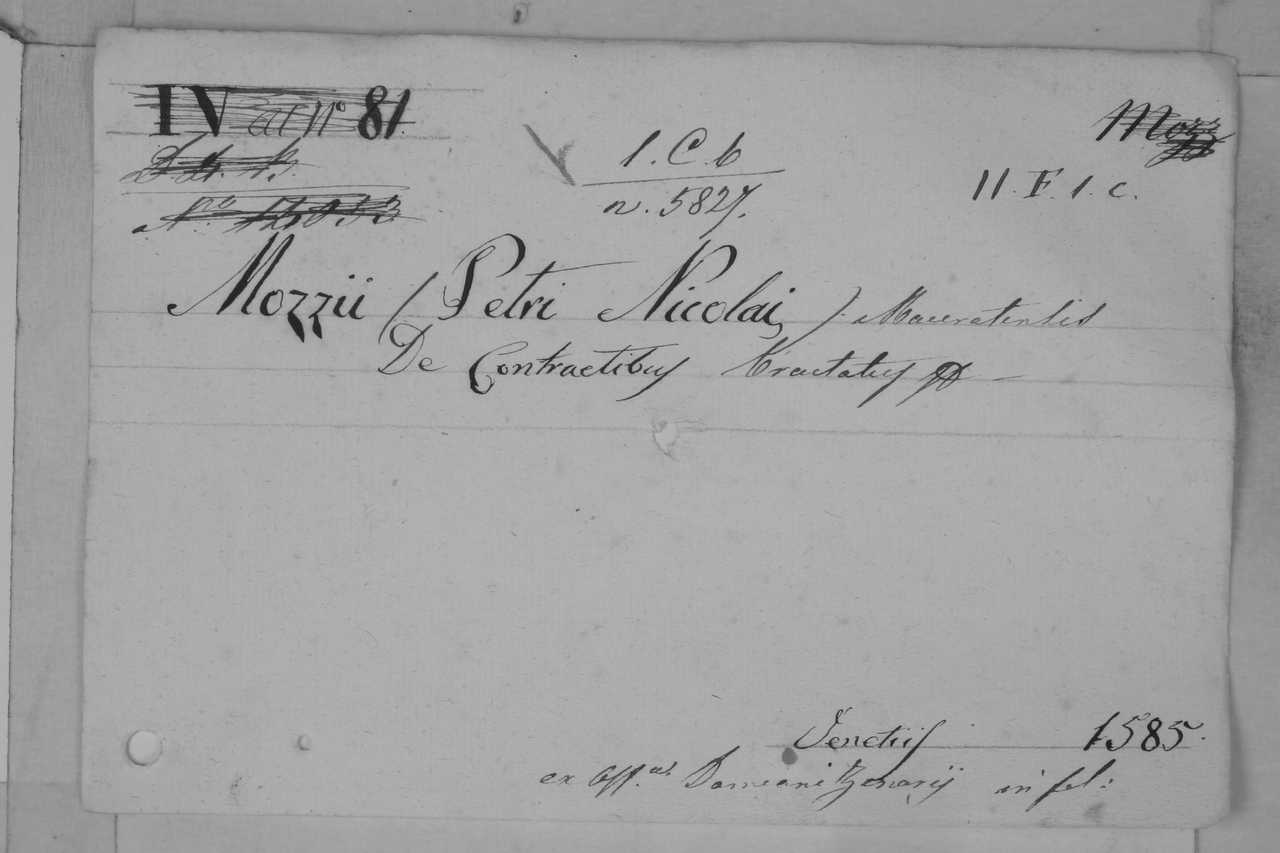 IV at N° 81.
Mozz
1. C. b
n. 5827.
11. F. 1. c.
Mozzii (Petri Nicolai) Maceratensis
De Contractibus tractatus
Venetiis 1585.
ex Off.na Damiani Zenarij in fol: